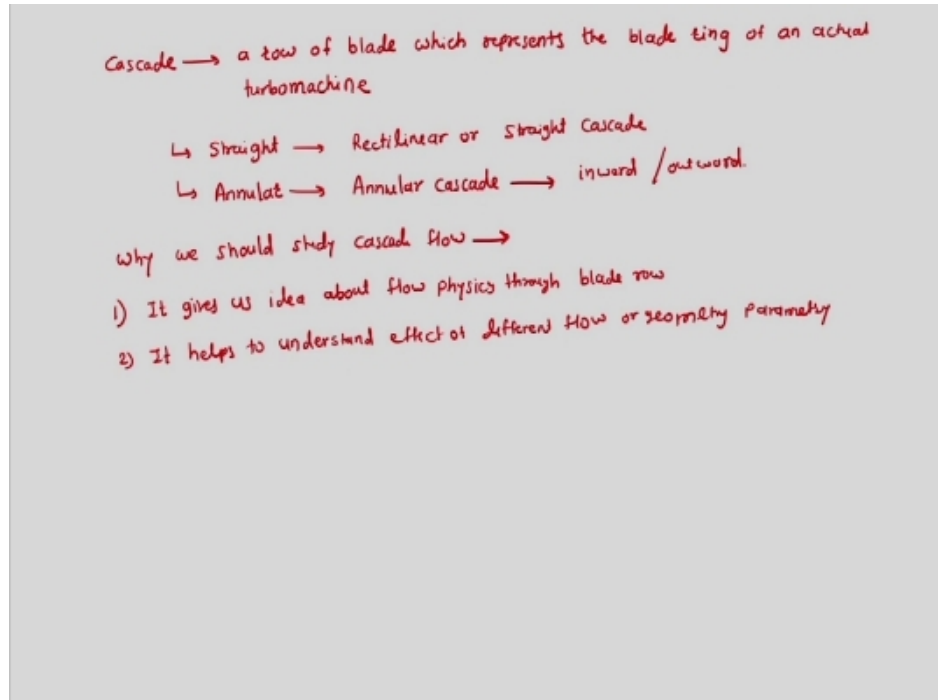 Cascade → a row of blade which represents the blade ring of an actual
turbomachine
↳ Straight → Rectilinear or straight Cascade
↳ Annulat → Annular Cascade → inward / outward.
Why we should study cascade flow →
1) It gives us idea about flow physics through blade row
2) It helps to understand effect of different flow or geometry parametry